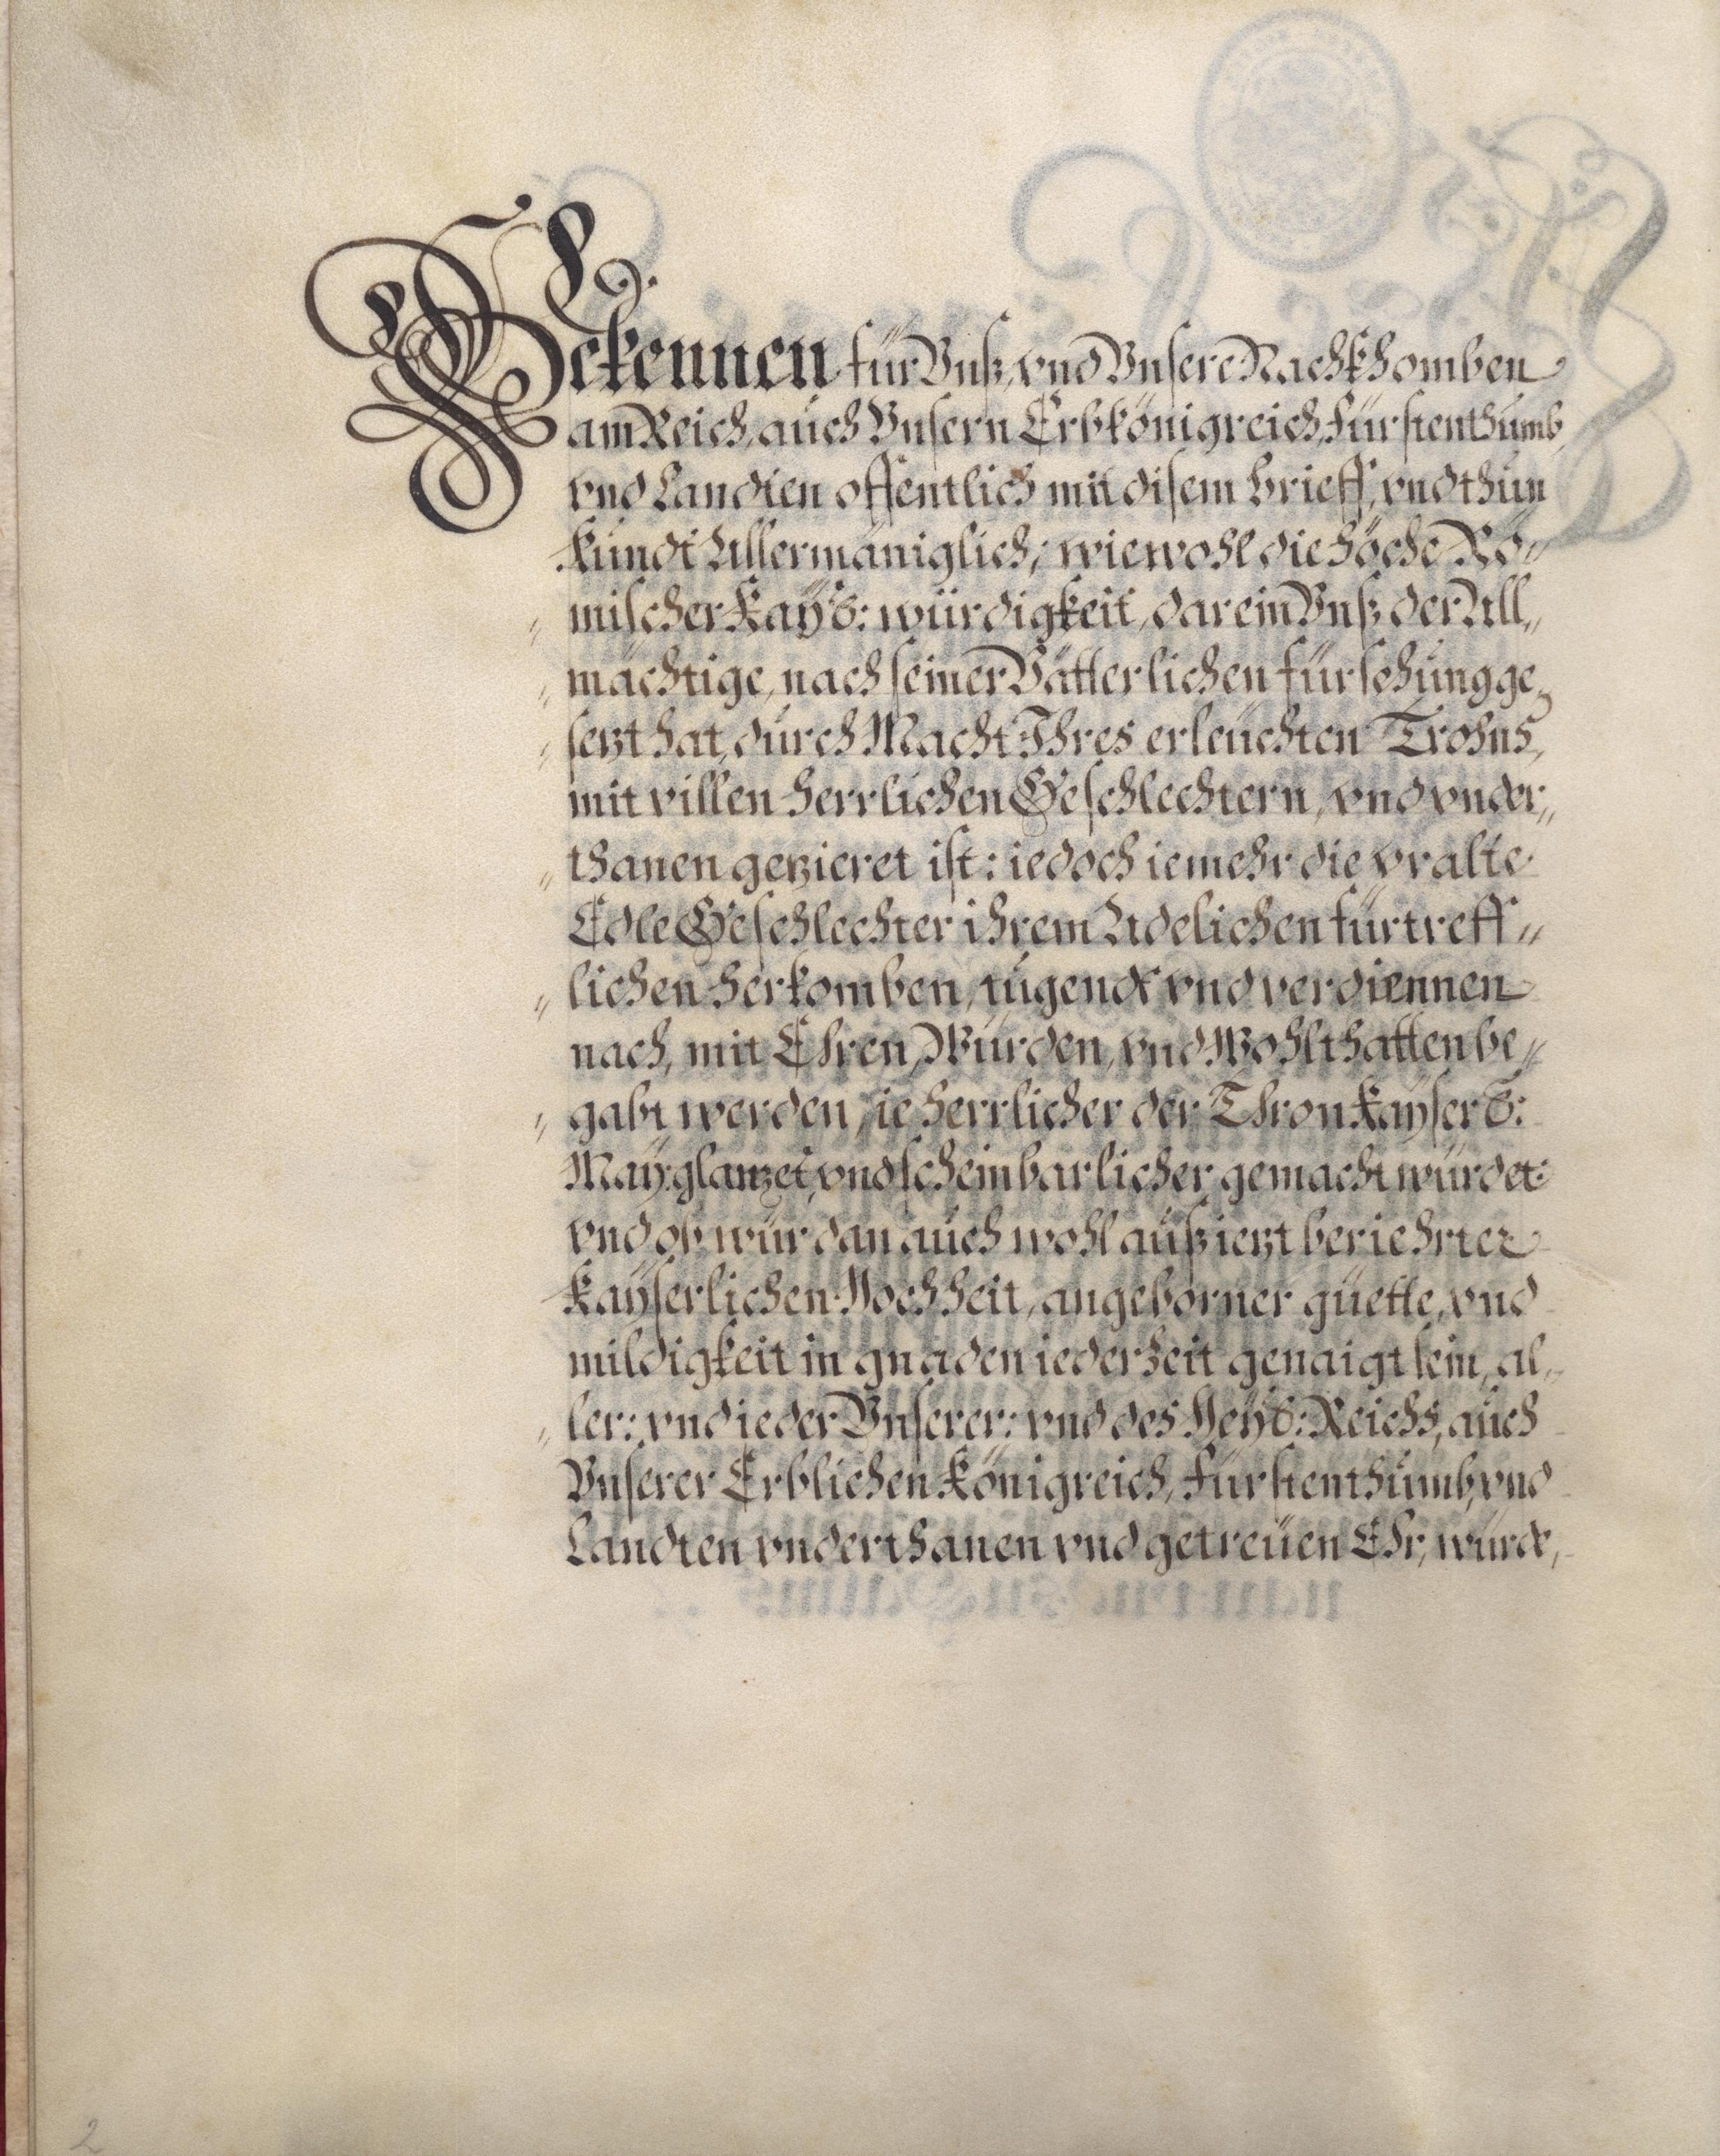 Bekennen für Vnß, vnd Vnsere Nachkhomben
am Reich, auch Vnsern Erbkönigreich, Fürstenthumb,
vnd Landten offentlich mit disem brieff, vnd thun
kundt Allermäniglich; wiewohl die höche Rö„
„ mischer Kayß: würdigkeit, darein Vnß der All„
„ mächtige, nach seiner Vätterlichen fürsehung ge„
„ sezt hat, durch Macht Ihres erleuchten Trohns,
mit villen herrlichen Geschlechtern, vnd vnder„
„ thanen gezieret ist: iedoch iemehr die vralte
Edle Geschlechter ihrem Adelichen fürtreff„
„ lichen herkomben, tugendt vnd verdiennen
nach, mit Ehren, Würden, vnd Wohlthatten be„
„ gabt werden, ie herrlicher der Thron Kayserß:
May: glanzet, vnd scheinbarlicher gemacht würdet:
vnd ob wür dan auch wohl auß iezt beriehrter
Kayserlichen Hochheit, angeborner güette, vnd
mildigkeit in gnaden iederzeit genaigt sein, al„
„ ler: vnd ieder Vnserer: vnd des Heyß: Reichs, auch
Vnserer Erblichen Königreich, Fürstenthumb, vnd
Landten vnderthanen vnd getreüen Ehr, würde,
2